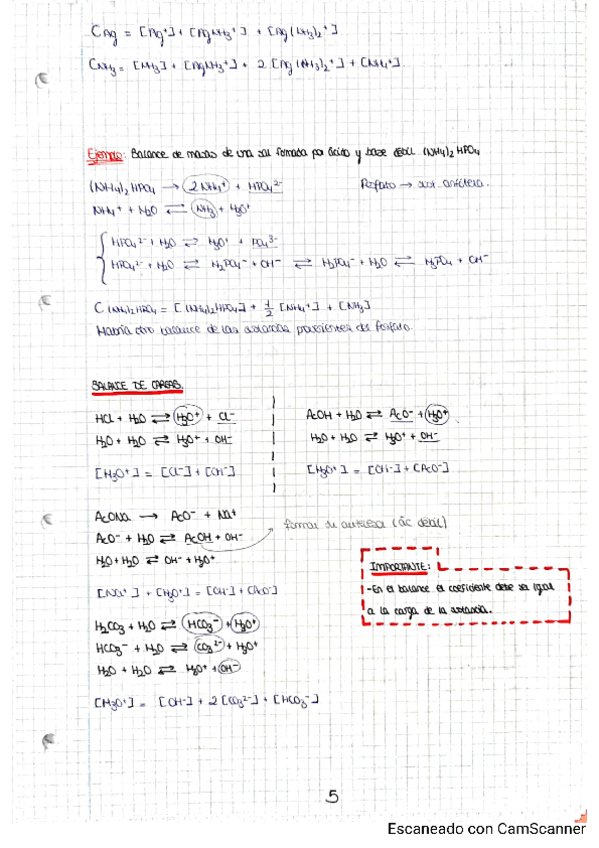 C Ag = [Ag+] + [AgNH3+] + [Ag(NH3)2+]
C NH3 = [NH3] + [AgNH3+] + 2 [Ag(NH3)2+] + [NH4+]
Ejemplo: Balance de masas de una sal formada por ácido y base débil (NH4)2HPO4
(NH4)2HPO4 → 2NH4+ + HPO4²⁻ Fosfato → sust. anfótera.
NH4+ + H2O ⇌ NH3 + H3O+
HPO4²⁻ + H2O ⇌ H3O+ + PO4³⁻
HPO4²⁻ + H2O ⇌ H2PO4⁻ + OH⁻ ⇌ H2PO4⁻ + H2O ⇌ H3PO4 + OH⁻
C (NH4)2HPO4 = [(NH4)2HPO4] + 1/2 [NH4+] + [NH3]
Habría otro balance de las sustancias provenientes del fosfato.
BALANCE DE CARGAS.
HCl + H2O ⇌ H3O+ + Cl⁻
H2O + H2O ⇌ H3O+ + OH⁻
[H3O+] = [Cl⁻] + [OH⁻]
AcOH + H2O ⇌ AcO⁻ + H3O+
H2O + H2O ⇌ H3O+ + OH⁻
[H3O+] = [OH⁻] + [AcO⁻]
AcONa → AcO⁻ + Na+
AcO⁻ + H2O ⇌ AcOH + OH⁻ (ác débil)
H2O + H2O ⇌ OH⁻ + H3O+
[Na+] + [H3O+] = [OH⁻] + [AcO⁻]
IMPORTANTE:
- En el balance el coeficiente debe ser igual
a la carga de la sustancia.
H2CO3 + H2O ⇌ HCO3⁻ + H3O+
HCO3⁻ + H2O ⇌ CO3²⁻ + H3O+
H2O + H2O ⇌ H3O+ + OH⁻
[H3O+] = [OH⁻] + 2 [CO3²⁻] + [HCO3⁻]
5
Escaneado con CamScanner